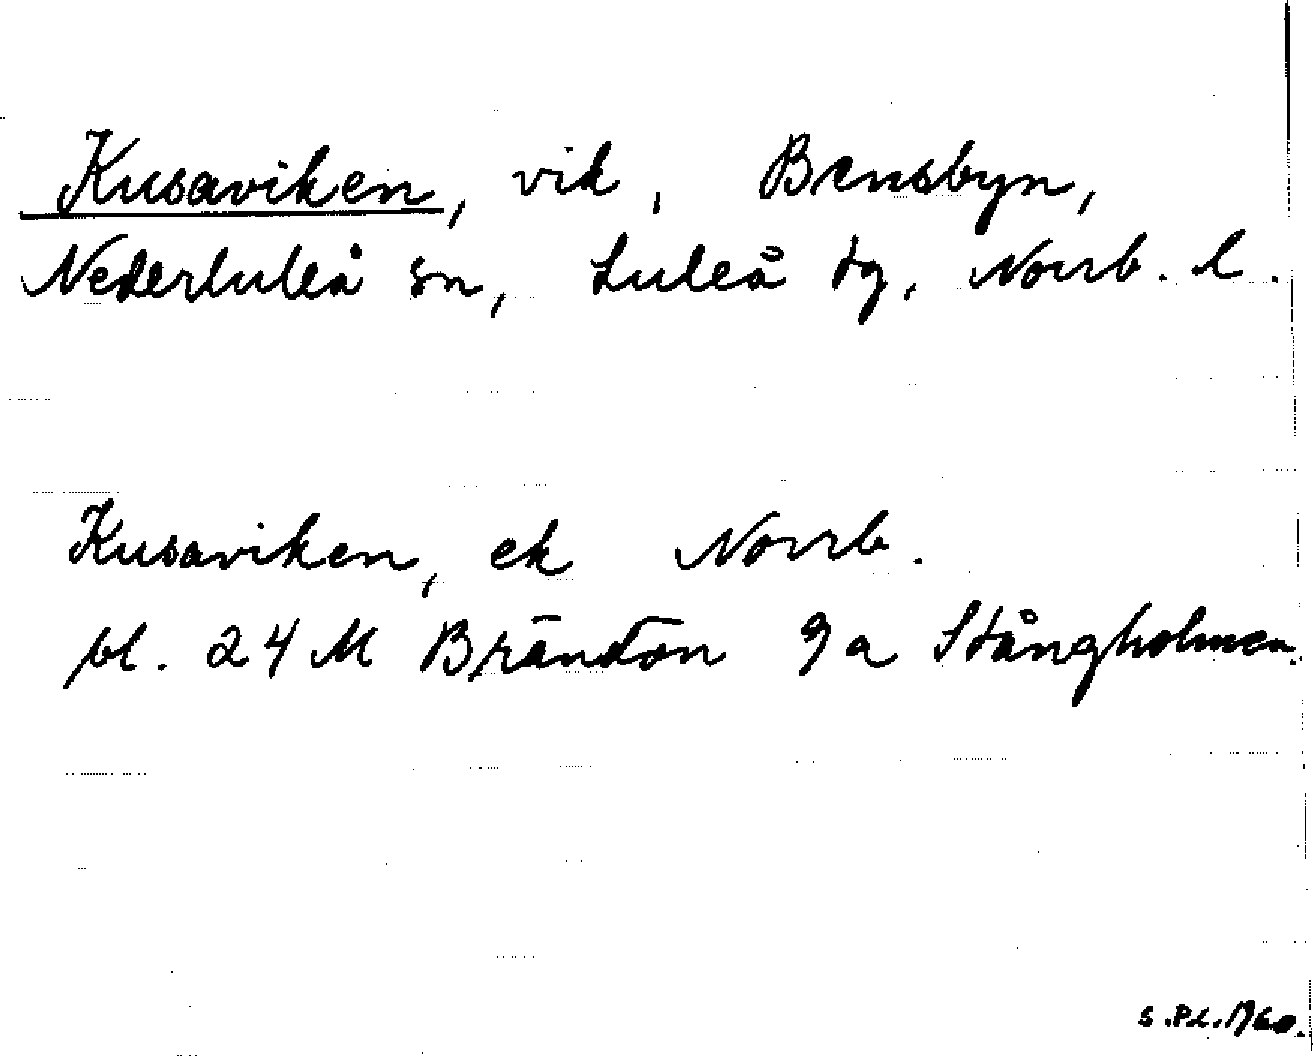 Kusaviken, vik, Bensbyn,
Nederluleå sn, Luleå tg, Norrb. l.
Kusaviken, ek Norrb.
bl. 24 M Brändön 9 a Stångholmen.
S.Pl. 1960.